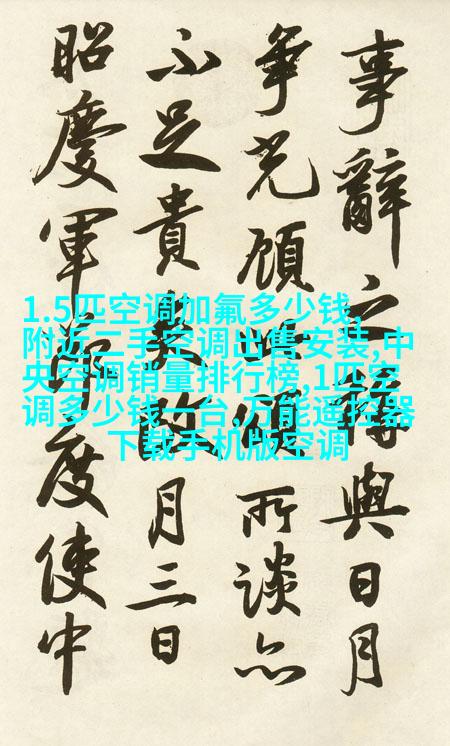 事辭之與日月
争光顧所談亦
不足貴矣月三日
昭慶軍節度使中
1.5匹空调加氟多少钱,
附近二手空调出售安装,中
央空调销量排行榜,1匹空
调多少钱一台,万能遥控器
下载手机版空调